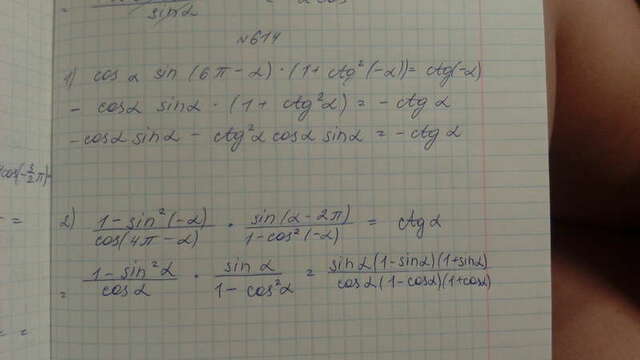 sin α
№614
1) cos α sin (6π - α) · (1 + ctg²(-α)) = ctg(-α)
- cos α sin α · (1 + ctg²α) = - ctg α
- cos α sin α - ctg²α cos α sin α = - ctg α
cos(-3/2π)
=
2) (1 - sin²(-α))/(cos(4π - α)) · (sin(α - 2π))/(1 - cos²(-α)) = ctg α
= (1 - sin²α)/(cos α) · (sin α)/(1 - cos²α) = (sin α (1 - sin α)(1 + sin α))/(cos α (1 - cos α)(1 + cos α))
= =